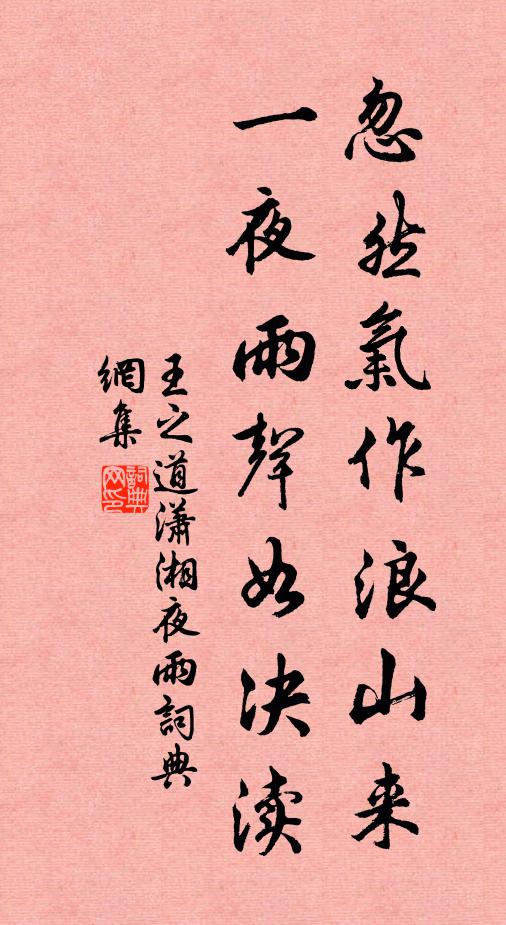 忽然氣作浪山来
一夜雨聲如决渎
王之道瀟湘夜雨詞典
網集
詞典
网印